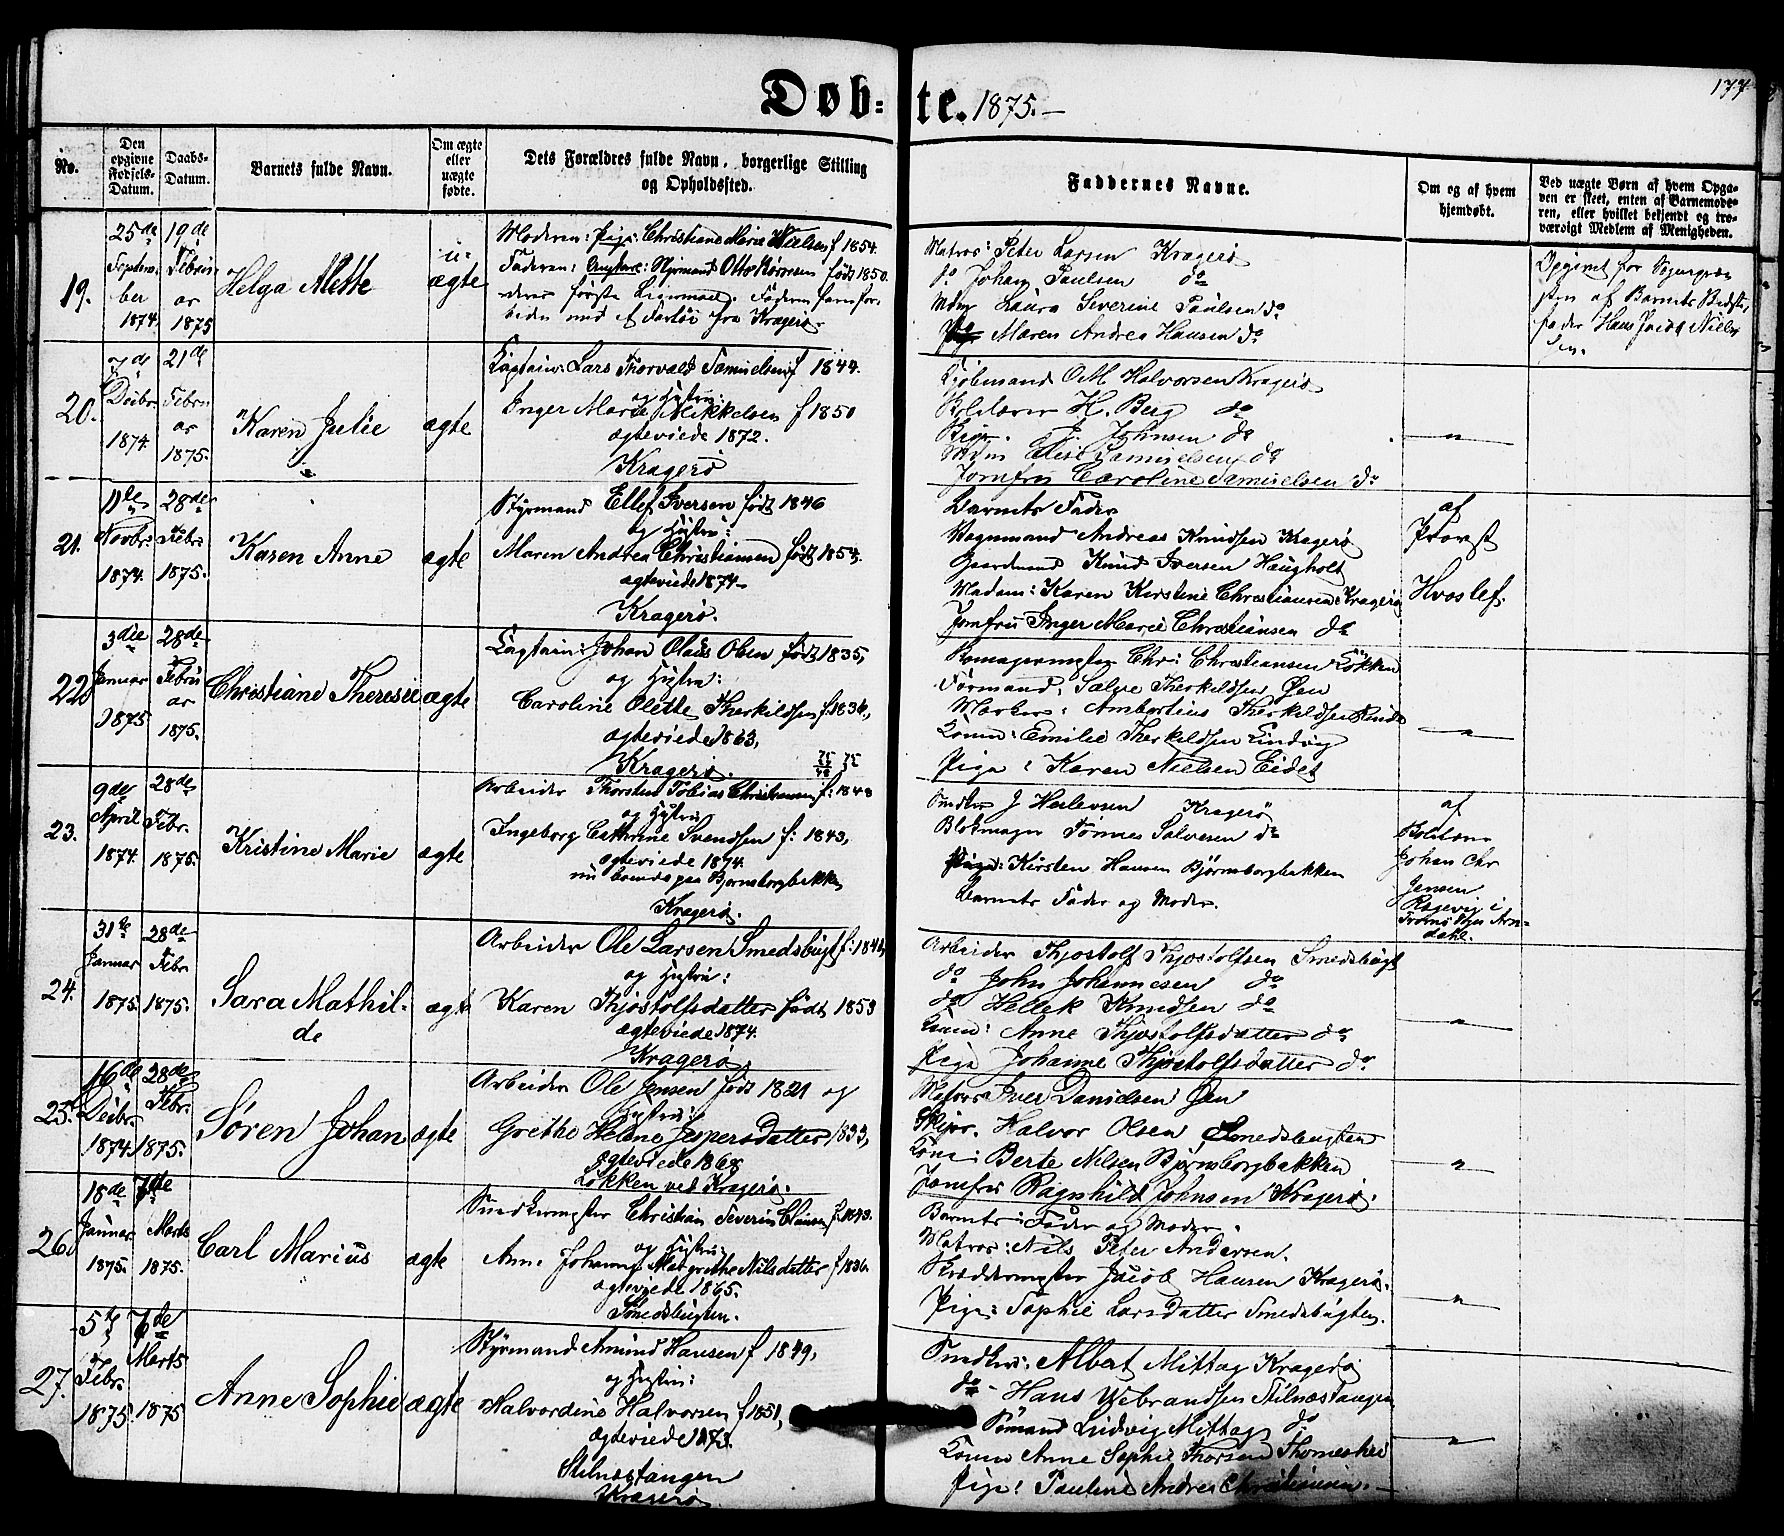 Døb- te. 1875.-
177
No.
Den opgivne Fødsels-Datum.
Daabs-Datum.
Barnets fulde Navn.
Om ægte eller uægte fødte.
Dets Forældres fulde Navn, borgerlige Stilling og Opholdssted.
Faddernes Navne.
Om og af hvem hjemdøbt.
Ved uægte Børn af hvem Opgaven er skeet, enten af Barnemoderen, eller hvilket bekjendt og troværdigt Medlem af Menigheden.
19.
25de September 1874.
19de Februar 1875
Helga Mette
u-ægte
Moderen: Pige: Christiane Marie Nielsen f 1854.
Faderen: Ungkarl: Styrmand Otto født 1850.
deres første Leiermaal. Faderen
med et Fartøi fra Kragerø.
Matros: Peter Larsen Kragerø
do. Johan Paulsen do
Mdm Laura Severine Paulsen do
Pig Maren Andrea Hansen do
Opgivet for Sognepræ-
sten af Barnets Bedste-
fader Hans Jacob Niel-
sen.
20.
7de Decbr. 1874.
21de Februar 1875.
Karen Julie
ægte
Captain: Lars Thorvald Samuelsen f 1844.
og Hustru:
Inger Marie Mikkelsen f 1850
ægteviede 1872.
Kragerø
Kjøbmand O M Halvorsen Kragerø
H. Berg do
J. Johnsen do
Mdm Elise Samuelsen do
Jomfru Caroline Samuelsen do
"
21.
11te Novbr. 1874.
28de Febr. 1875.
Karen Anne
ægte
Styrmand Ellef Iversen født 1846
og Hustru:
Maren Andrea Christiansen født 1854.
ægteviede 1874-
Kragerø.
Barnets Fader
Vognmand Andreas Knudsen Kragerø
Gaardmand Knud Iversen Haugholt
Madam: Karen Kirstine Christiansen Kragerø
Jomfru Inger Marie Christiansen do
af
Provst
Hvoslef.
22.
3die Januar 1875
28de Februar 1875.
Christiane Theresie
ægte
Captain: Johan Olaus Olsen født 1835,
og Hustru:
Caroline Olette Therkildsen f. 1836,
ægteviede 1863,
Kragerø.
Chr: Christiansen Løkken
Formand: Salve Therkildsen Øen
Ambortius Therkildsen
Kone: Emilie Therkildsen Lindvig
Pige: Karen Nielsen Eidet
"
23.
9de April 1874.
28de Febr. 1875.
Kristine Marie
ægte
Arbeider Thorsten Tobias Christiansen f: 1848
og Hustru
Ingeborg Cathrine Svendsen f: 1843,
ægteviede 1874.
nu boende paa Bjørnsborgbakken
Kragerø.
Snedker J Herlevsen Kragerø
Blokmager Tønnes Salvesen do
Pige: Kirsten Hansen Bjørnsborgbakken
Barnets Fader og Moder.
af
Johan Chr
Jensen
i
Tromø
Arn-
dahl.
24.
31te Januar 1875
28de Febr 1875.
Sara Mathil-
de
ægte
Arbeider Ole Larsen Smedsbugt
og Hustru:
Karen Thjostolfsdatter født 1853
ægteviede 1874.
Kragerø
Arbeider Thjostolf Thjostolfsen Smedsbugt
do John Johannesen do
do Hellek Knudsen do
Kone: Anne Thjostolfsdatter do
Pige Johanne Thjostolfsdatter do
"
25.
16de Decbr. 1874
28de Febr. 1875.
Søren Johan
ægte
Arbeider Ole Jensen født 1821 og
Hustru:
Grethe Helene Jespersdatter 1833,
ægteviede
Løkken ved Kragerø.
Matros: Iver Danielsen Øen
Skipr. Halvor Olsen Smedsbugten
Kone: Berte Nilsen Bjørnsborgbakken
Jomfru Ragnhild Johnsen Kragerø.
"
26.
18de Januar 1875.
7de Marts 1875.
Carl Marius
ægte
Snedkermester Christian Severin Clausen
og Hustru:
Anne Johanne Margrethe Nilsdatter f 1836.
ægteviede 1865.
Smedsbugten.
Barnets: Fader og Moder.
Matros: Nils Peter Andersen.
Skræddermester Jacob Hansen Kragerø.
Pige: Sophie Larsdatter Smedsbugten.
"
27.
5te Febr. 1875.
7de Marts 1875
Anne Sophie
ægte
Styrmand Amund Hansen f 1849,
og Hustru:
Halvordine Halvorsen f 1851,
ægteviede 1873.
Stilnestangen
Kragerø
Snedker: Albert Mittag Kragerø
do - Hans Wibrandsen Stilnestangen
Sømand Ludvig Mittag do
Kone Anne Sophie Thorsen
Pige: Pauline Andrea Christiansen.
"